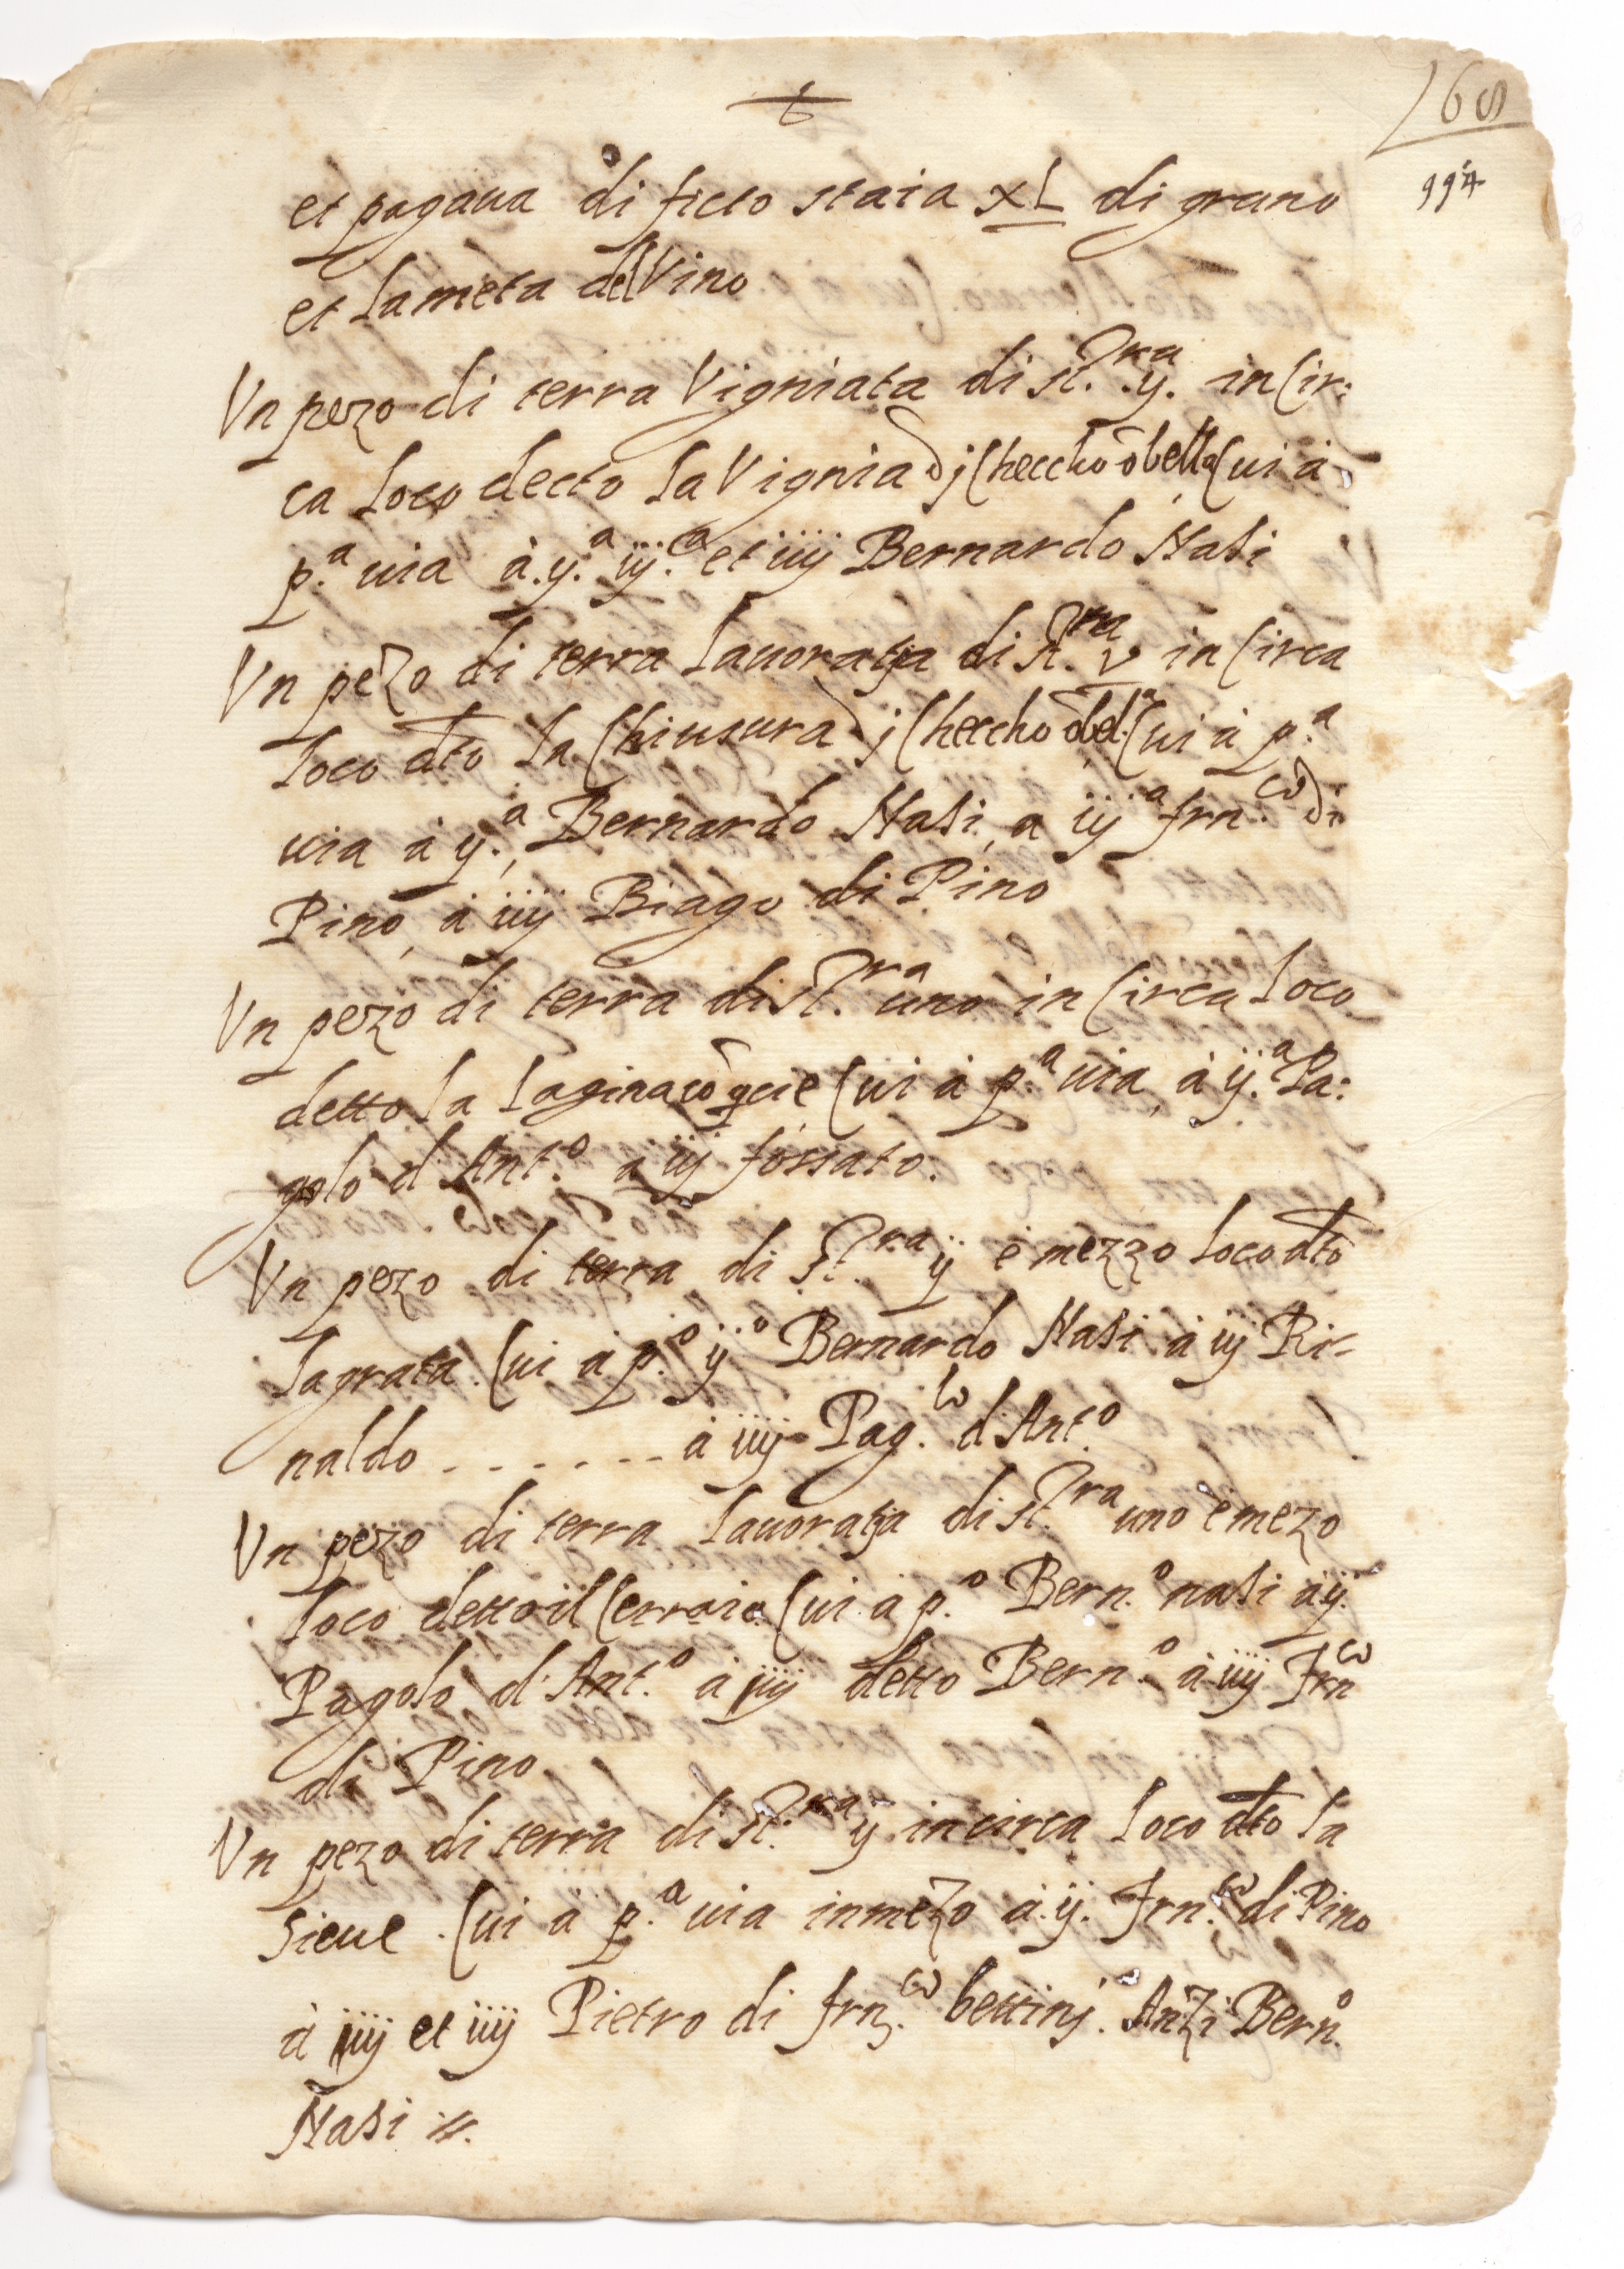 168
994
et pagaua di ficto staia XL di grano
et la meta del Vino
Vn pezo di terra Vigniata di st.ra ij. in Cir:
ca loco decto la Vignia dj Checcho o bello Cui à
p.a uia à .ij.a iij.a et iiij Bernardo Nasi
Vn pezo di terra lauoratia di st.ra v in Circa
loco dto la Chiusura dj Checcho o bel.a Cui à p.a
uia à ij.a, Bernardo Nasi, a iij a frn.co di
Pino, à iiij Biago di Pino
Vn pezo di terra di st.ra uno in Circa loco
detto la Cui à p.a uia, à ij.a Pa:
golo d'Ant.o a iij fossato.
Vn pezo di terra di st.ra ij e mezzo loco dto
la grata. Cui à p.o ij.o Bernardo Nasi à iij Ri-
naldo - - - - - - - à iiij Pag.lo d'Ant.o
Vn pezo di terra lauoratia di st.ra uno e mezo
loco detto il Cerraio Cui à p.o Bern.o nasi à ij.
Pagolo d'Ant.o à iij detto Bern.o à iiij Frn.co
di Pino
Vn pezo di terra di st.ra ij in circa loco dto la
Sieue. Cui à p.a uia in mezo à ij. Frn.co di Pino
à iij et iiij Pietro di frn.co bettinj. Anzi Bern.o
Nasi //.